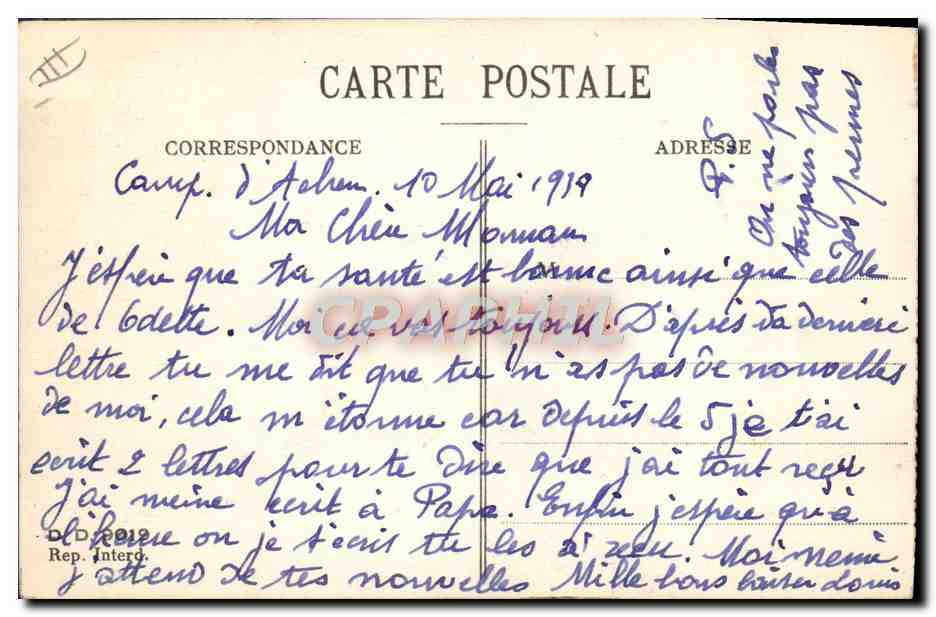 CARTE POSTALE
CORRESPONDANCE
ADRESSE
Camp. d'Achem. 10 Mai 1939
Ma Chère Maman
J'espère que ta santé est bonne ainsi que celle
de Odette. Moi ça vas toujours. D'après ta dernière
lettre tu me dit que tu n'as pas de nouvelles
de moi, cela m'étonne car depuis le 5 je t'ai
écrit 2 lettres pour te dire que j'ai tout reçu
J'ai même écrit à Papa. Enfin j'espère qu'à
l'heure où je t'écris tu les a reçu. Moi même
j'attend de tes nouvelles Mille bons baiser Louis
P.S
On ne parle
toujours pas
des permes
D. D. 9012
Rep. Interd.
CPAPHIL